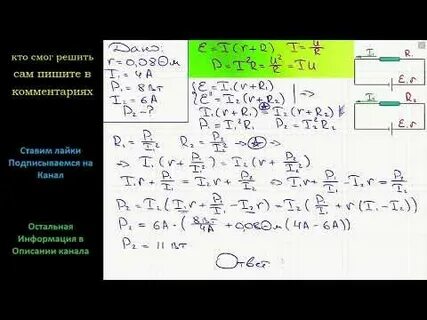 кто смог решить
сам пишите в
комментариях
Ставим лайки
Подписываемся на
Канал
Остальная
Информация в
Описании канала
Дано:
r = 0,08 Ом
I₁ = 4А
P₁ = 8 Вт
I₂ = 6А
P₂ - ?
ε = I(r+R) I = U/R
P = I²R = U²/R = IU
{ε = I₁(r+R₁)
{ε = I₂(r+R₂)
I₁(r+R₁) = I₂(r+R₂)
P₁ = I₁²R₁ P₂ = I₂²R₂
R₁ = P₁/I₁² R₂ = P₂/I₂² ⇒
⇒ I₁(r + P₁/I₁²) = I₂(r + P₂/I₂²)
I₁r + P₁/I₁ = I₂r + P₂/I₂ ⇒ I₁r + P₁/I₁ - I₂r = P₂/I₂
P₂ = I₂(I₁r + P₁/I₁ - I₂r) = I₂(P₁/I₁ + r(I₁-I₂))
P₂ = 6А · (8Вт/4А + 0,08Ом(4А - 6А))
P₂ = 11 Вт
Ответ
I₁ R₁
ε, r
I₂ R₂
ε, r